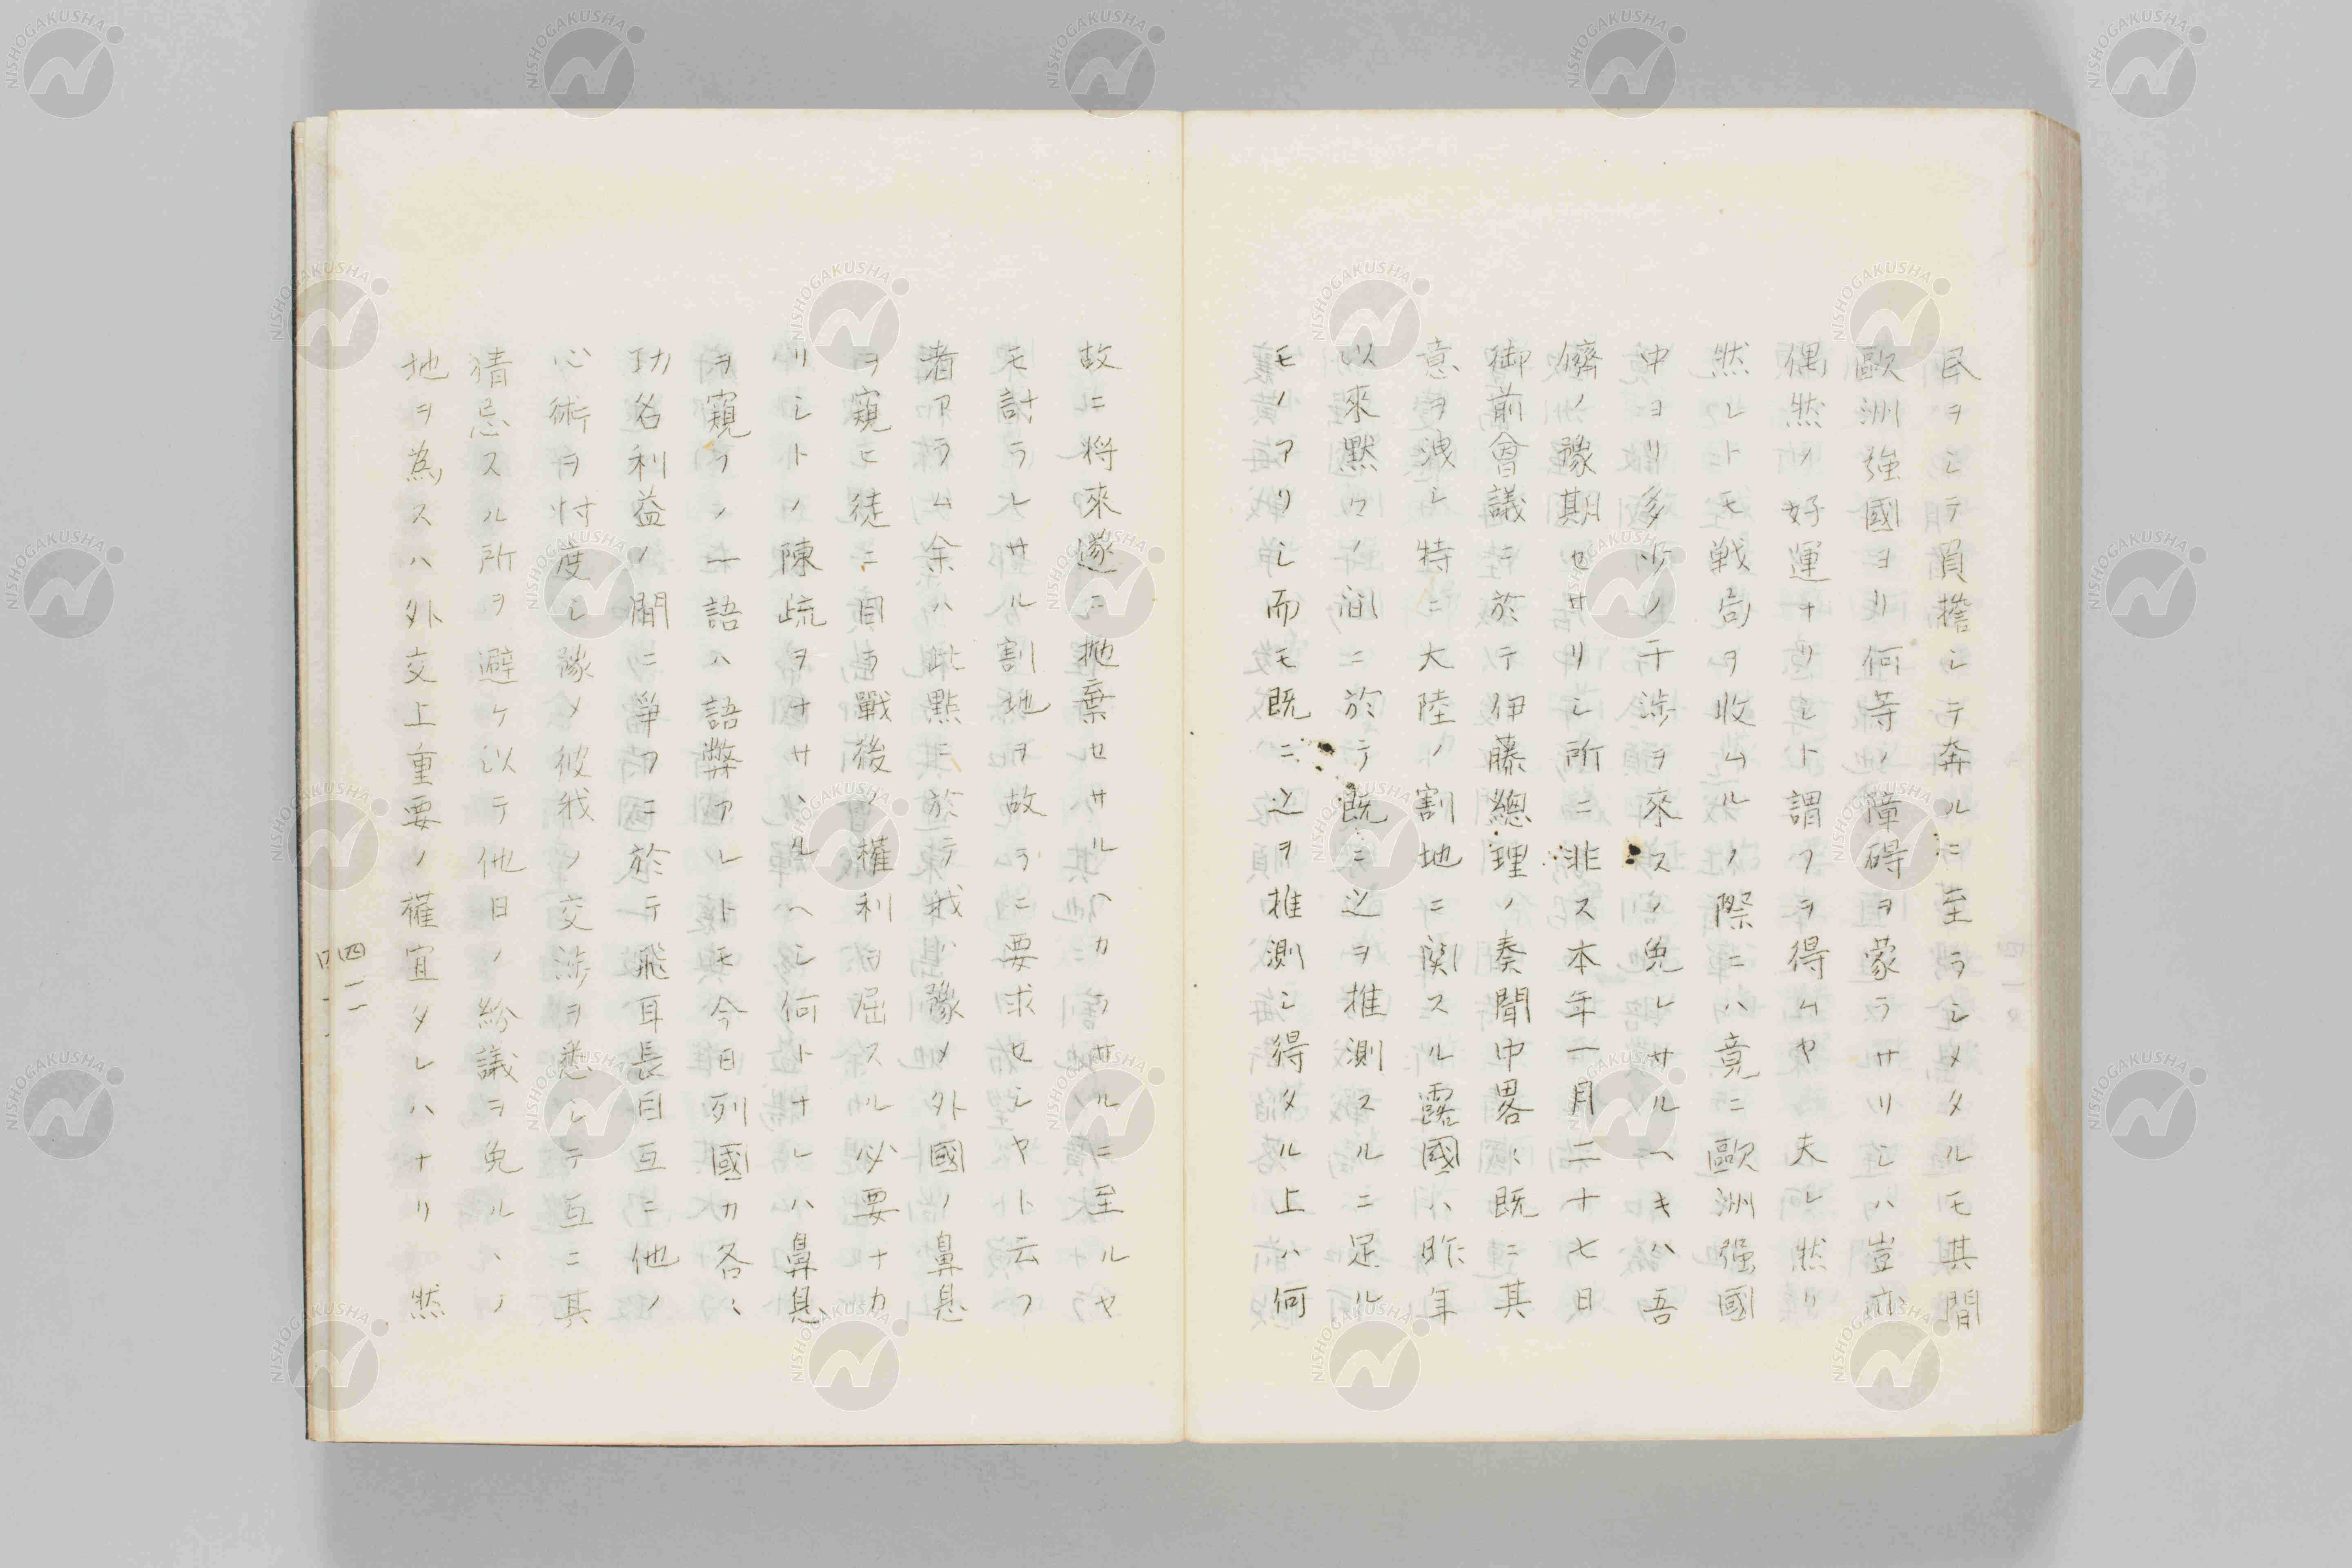 民ヲシテ負擔シテ奔ルニ至ラシメタルモ其間
歐洲強國ヨリ何等ノ障碍ヲ蒙ラサリシハ豈亦
偶然ノ好運ナリシト謂フヲ得ムヤ夫レ然リ
然レトモ戦局ヲ收ムルノ際ニハ竟ニ歐洲强國
中ヨリ多少ノ干渉ヲ來スノ免レサルヘキハ吾
儕ノ豫期セサリシ所ニ非ス本年一月二十七日
御前會議ニ於テ伊藤總理ノ奏聞中畧〻既ニ其
意ヲ洩シ特ニ大陸ノ割地ニ関スル露國ハ昨年
以來黙々ノ間ニ於テ既ニ之ヲ推測スルニ足ル
モノアリシ而モ既ニ之ヲ推測シ得タル上ハ何
故ニ将來遂ニ抛棄セサルヘカラサルニ至ルヤ
モ計ラレサル割地ヲ故ラニ要求セシヤト云フ
者アラム余ハ此點ニ於テ我ガ豫メ外國ノ鼻息
ヲ窺ヒ徒ニ自ラ戰後ノ權利ヲ屈スル必要ナカ
リシトノ陳疏ヲナサヽルヘシ何トナレハ鼻息
ヲ窺フノ一語ハ語弊アレトモ今日列國カ各〻
功名利益ノ間ニ爭フニ於テ飛耳長目互ニ他ノ
心術ヲ忖度シ豫メ彼我ノ交渉ヲ悉シテ互ニ其
猜忌スル所ヲ避ケ以テ他日ノ紛議ヲ免ルヽノ
地ヲ為スハ外交上重要ノ權宜タレハナリ 然
四一一